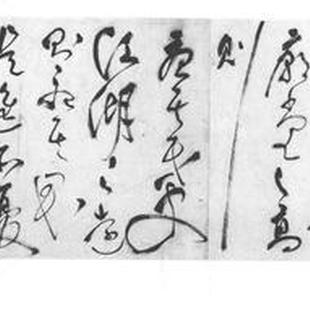 廟堂之高
則
憂其民處
江湖之遠
則憂其君
是進亦憂